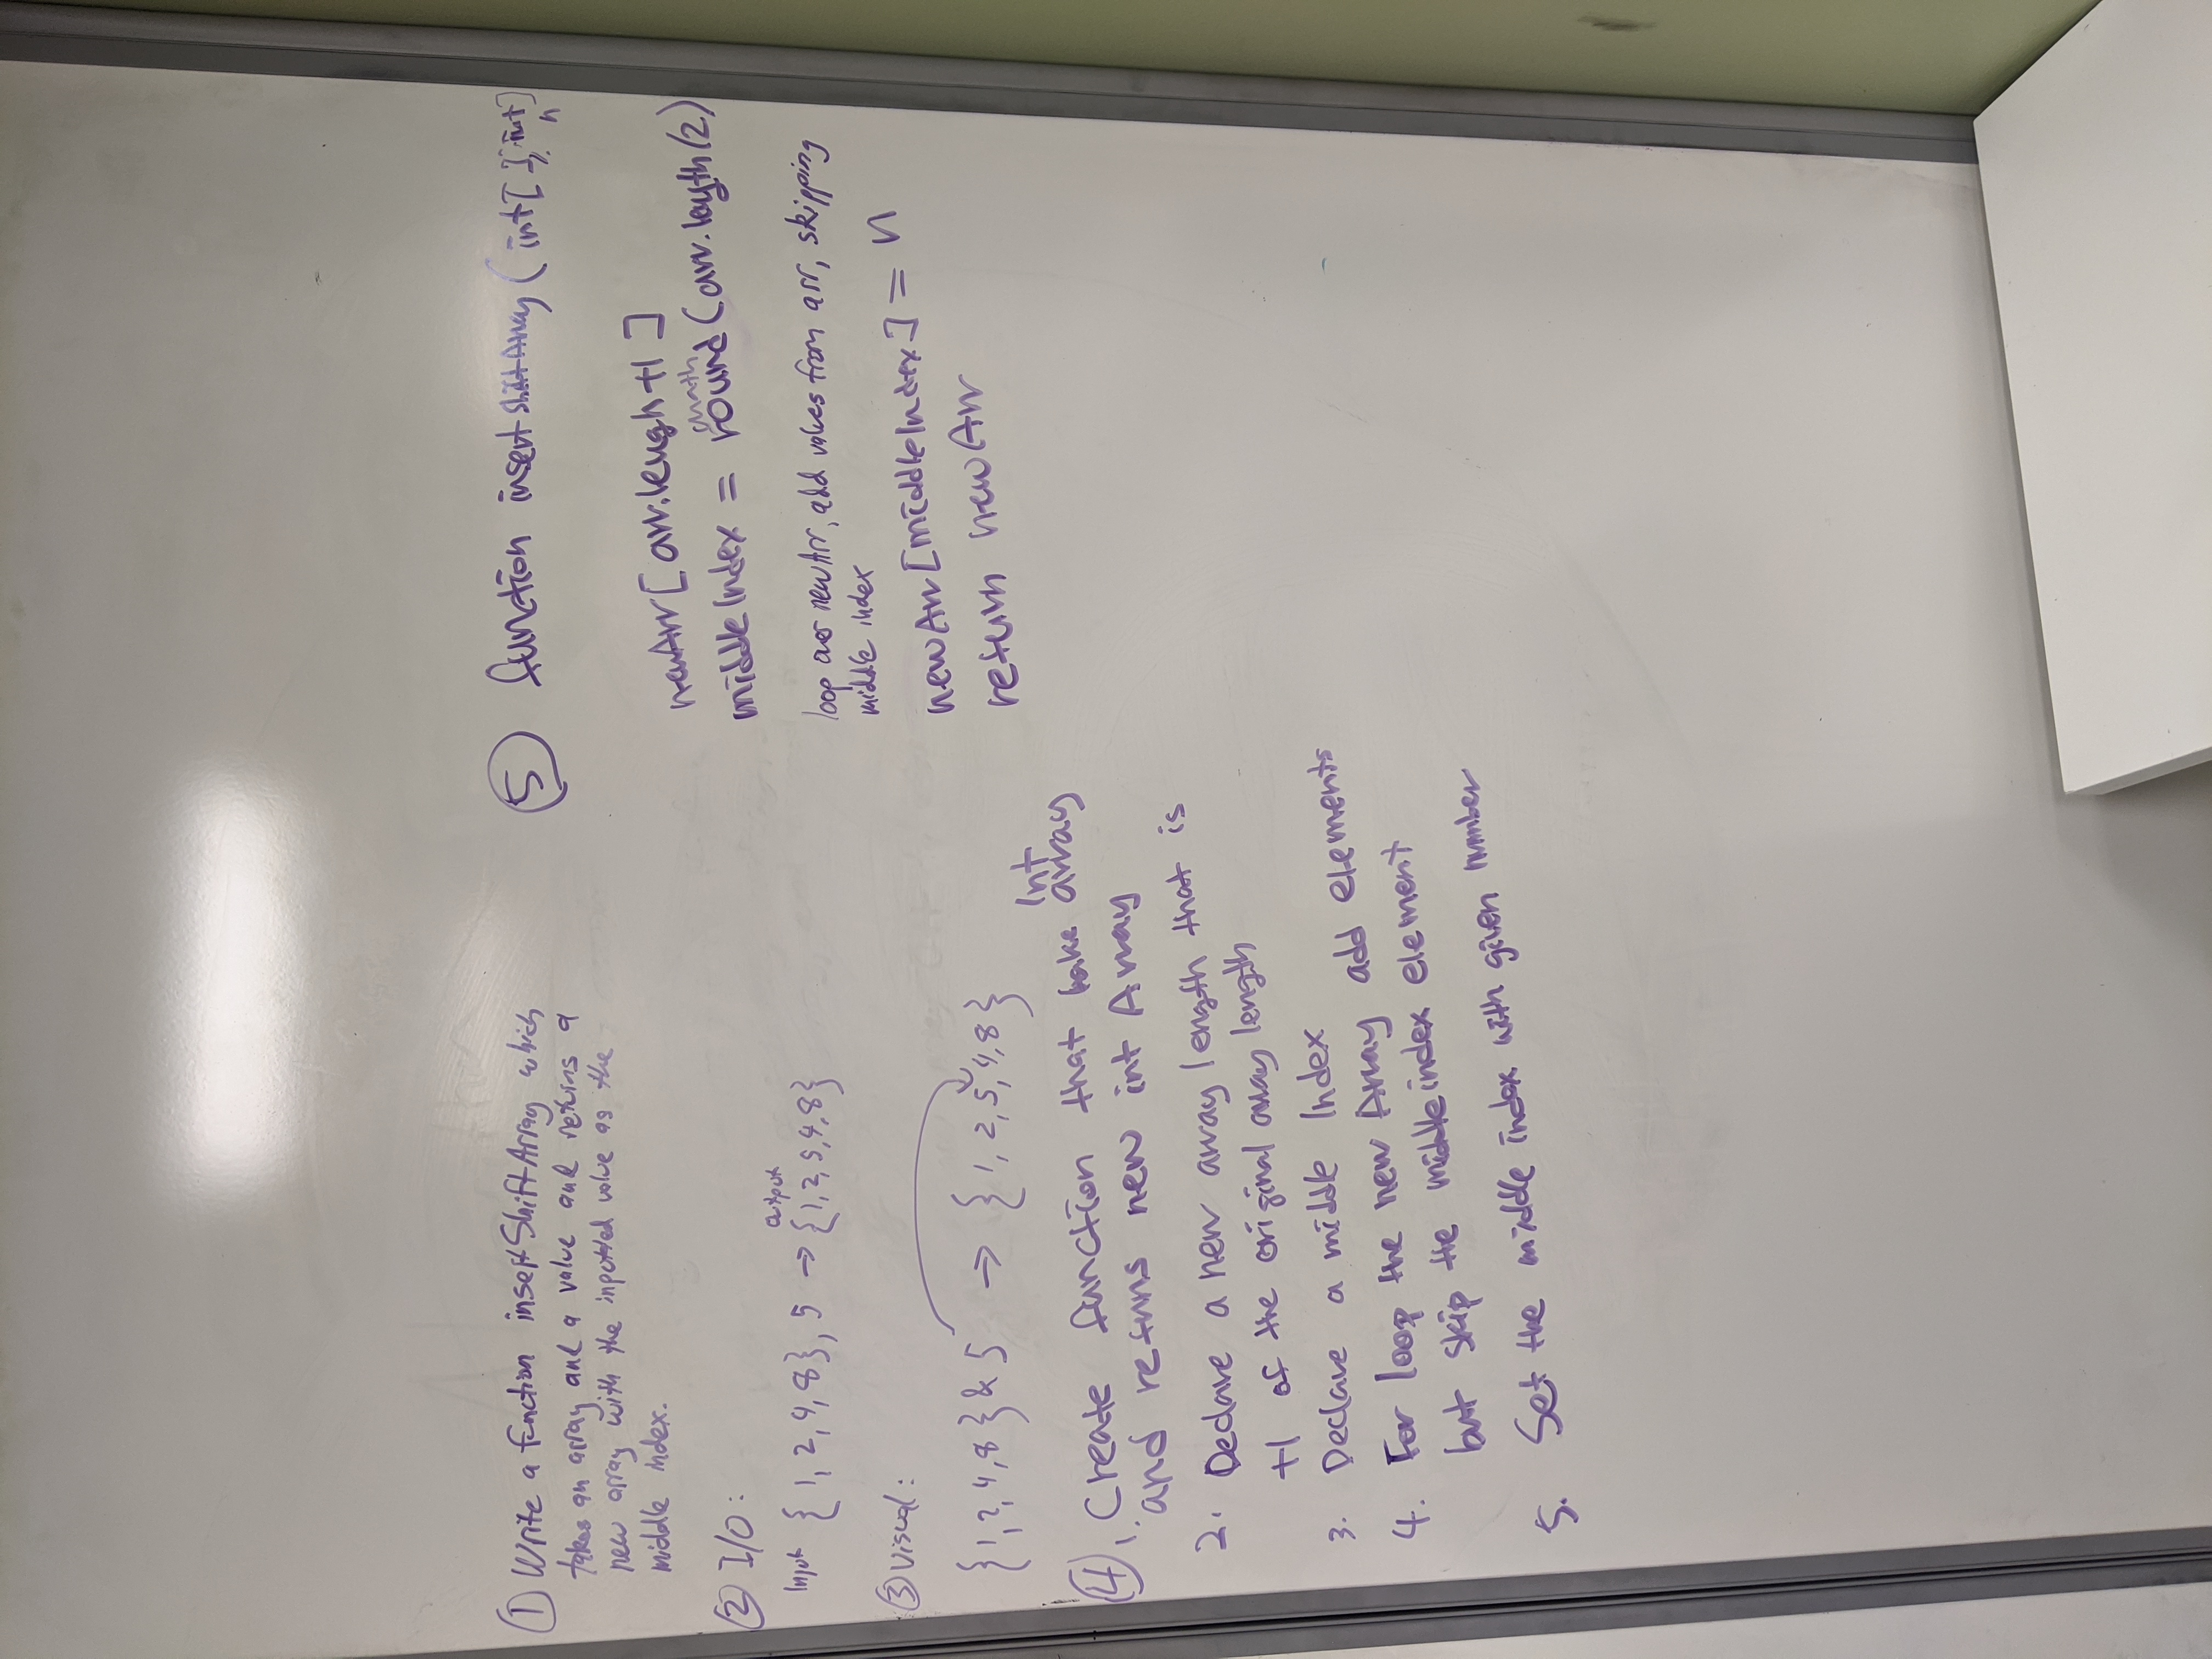 ① Write a function insertShiftArray which
takes an array and a value and returns a
new array with the inputted value as the
middle index.
② I/O:
Input {1, 2, 4, 8}, 5 → {1, 2, 5, 4, 8}
output
③ Visual:
{1, 2, 4, 8} & 5 → {1, 2, 5, 4, 8}
④ 1. Create function that take Int array
and returns new int Array
2. Declare a new array length that is
+1 of the original array length
3. Declare a middle Index
4. For loop the new Array add elements
but skip the middle index element
5. Set the middle index with given number
⑤ function insertShiftArray (int[], int n
newArr[arr.lengh+1]
math
middleIndex = round(arr.length/2)
loop over newArr, add values from arr, skipping
middle index
newArr[middleIndex] = n
return newArr